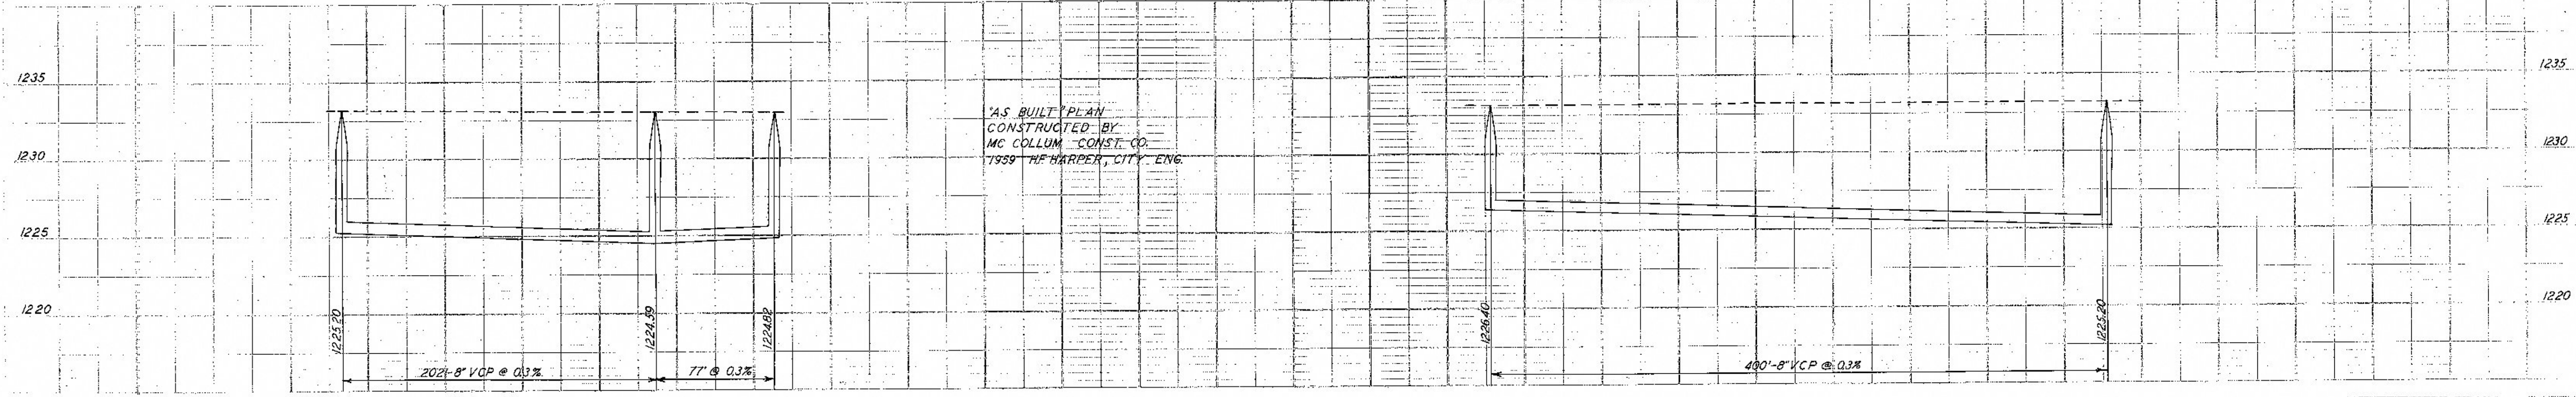 1235
1230
1225
1220
"AS BUILT" PLAN
CONSTRUCTED BY
MC COLLUM CONST. CO.
1959 HF HARPER, CITY ENG.
1225.20
1224.59
1224.82
202'-8" VCP @ 0.3%
77' @ 0.3%
1226.40
1225.20
400'-8" VCP @ 0.3%
1235
1230
1225
1220